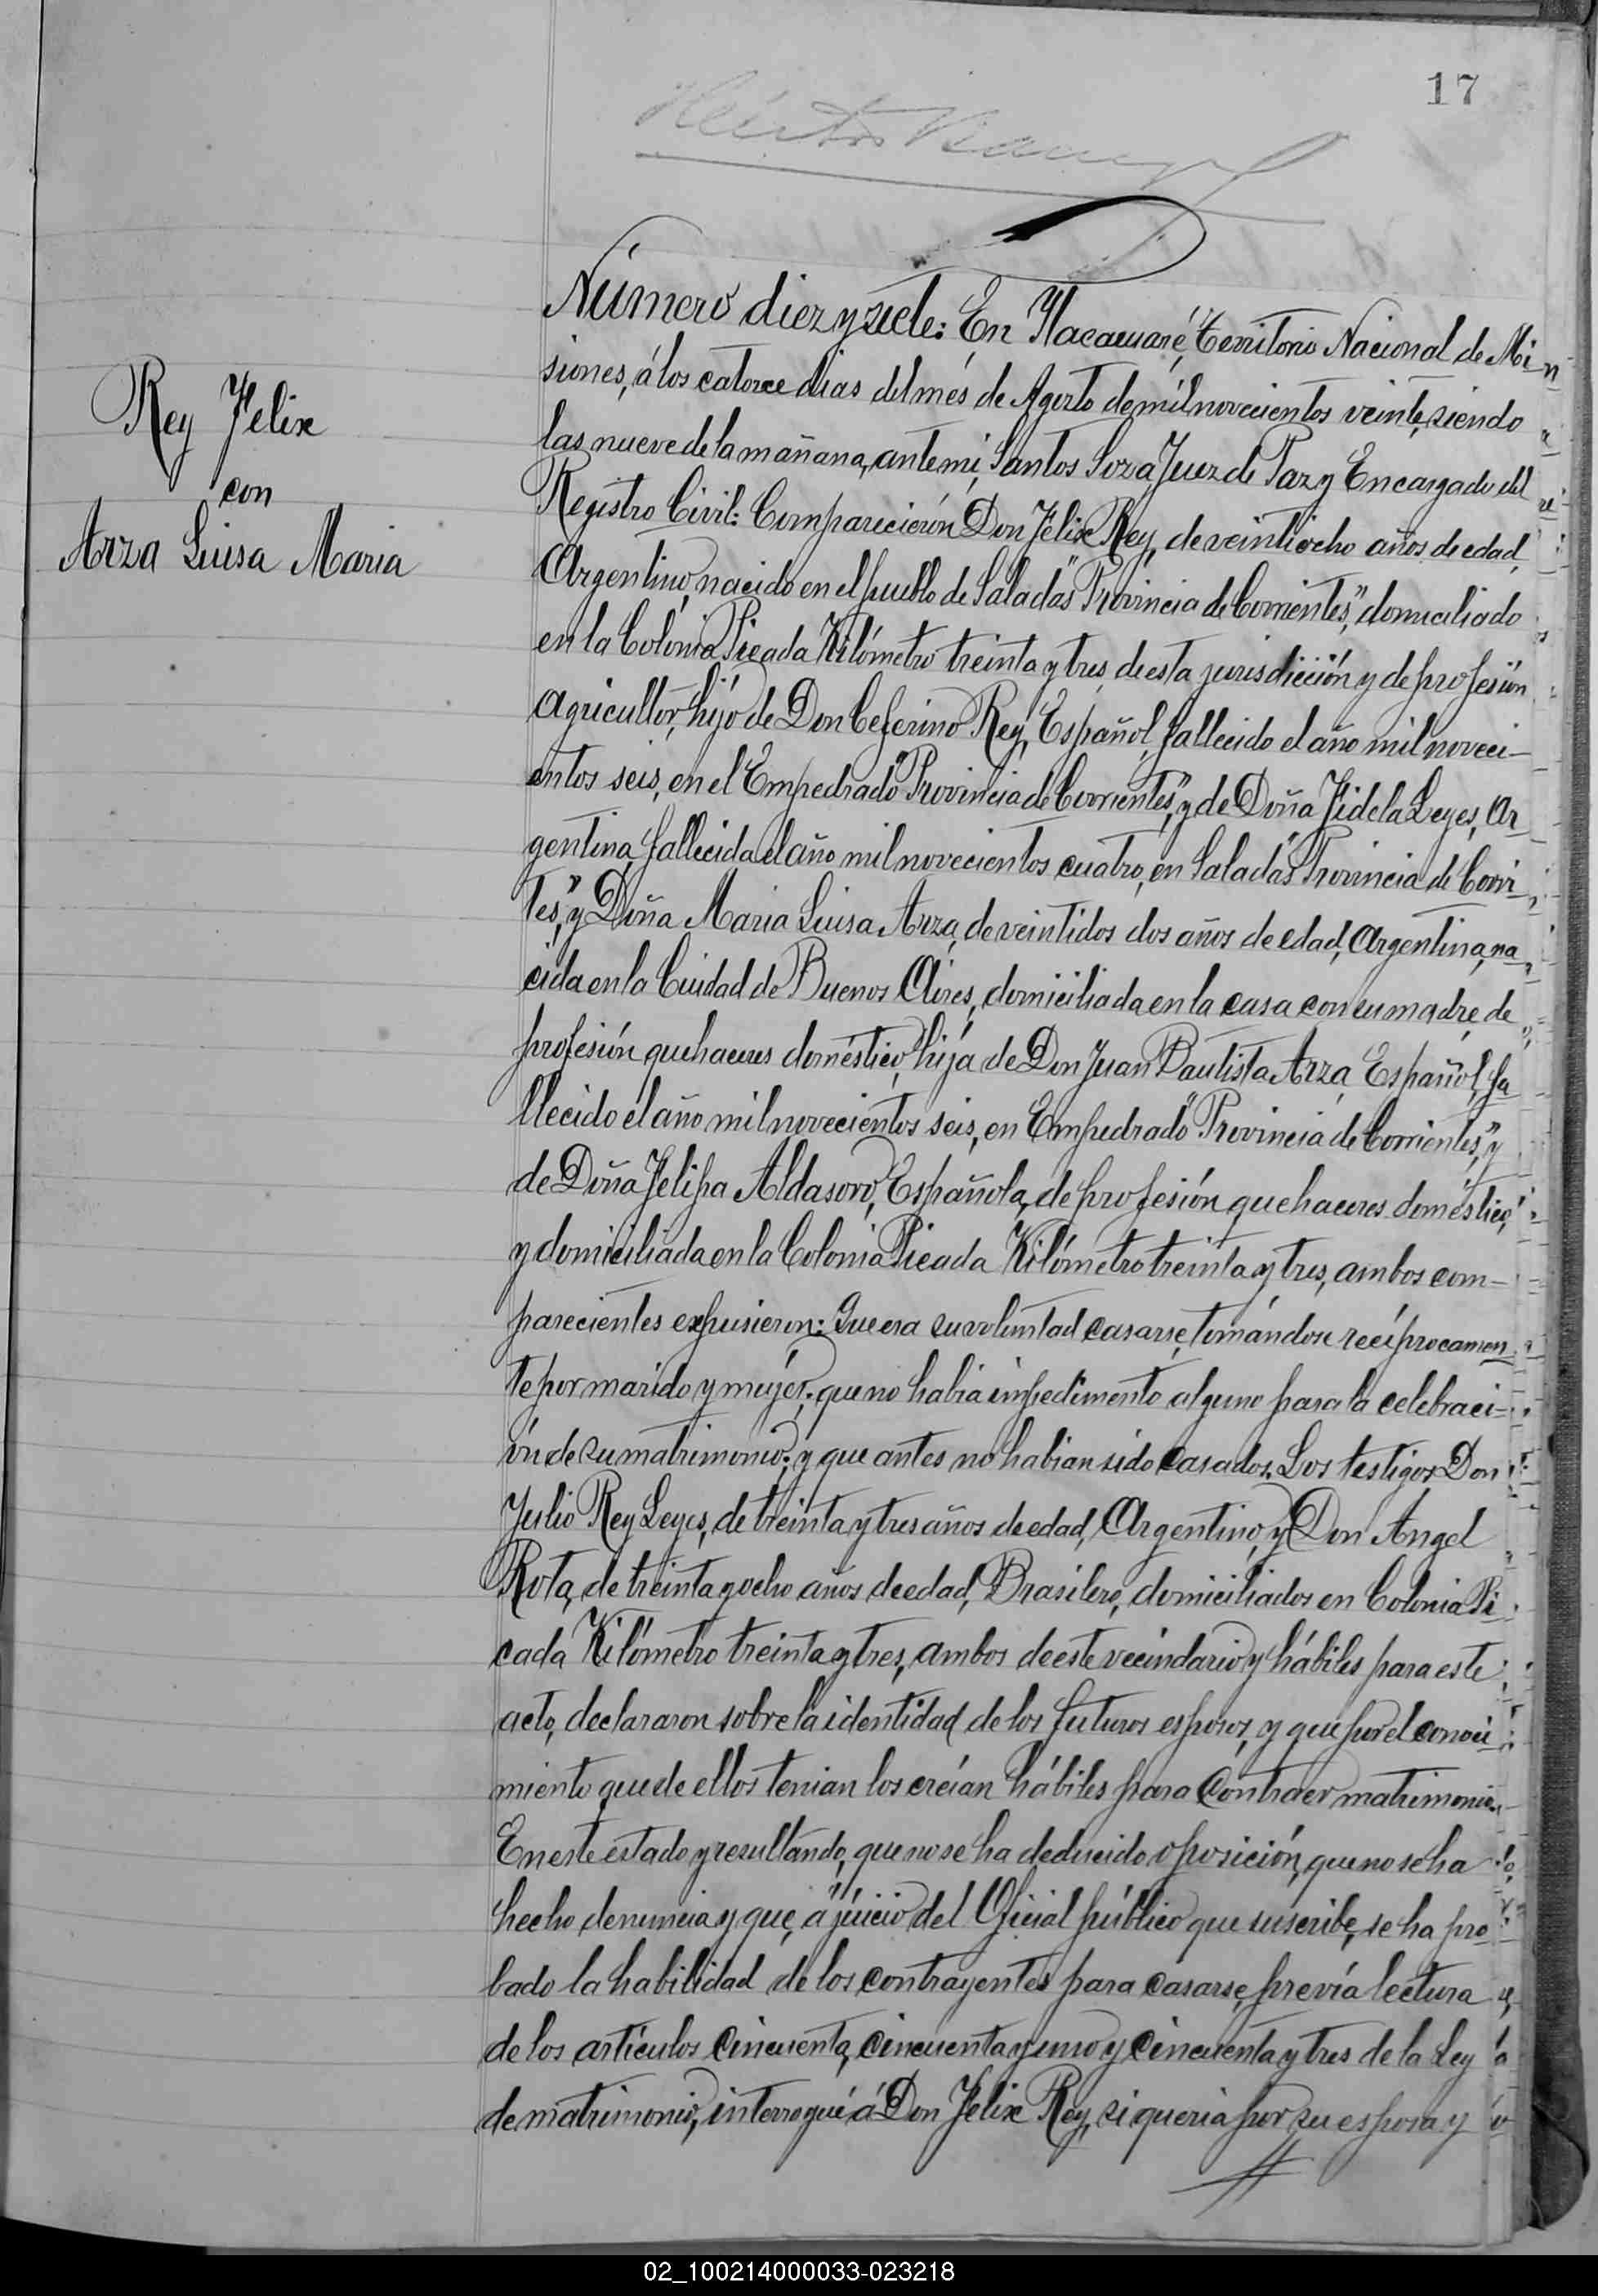 17
Rey Felix
con
Arza Luisa Maria
Número diez y siete: En Ytacaruaré, Territorio Nacional de Mi
siones, á los catorce dias del més de Agosto de mil novecientos veinte, siendo
las nueve de la mañana, ante mi, Santos Soza Juez de Paz y Encargado del
Registro Civil: Comparecierón Don Felix Rey, de veintiocho años de edad,
Argentino, nacido en el pueblo de Saladas "Provincia de Corrientes", domiciliado
en la Colónia Picada Kilómetro treinta y tres, de esta jurisdicción y de profesión
agricultor, hijo de Don Ceferino Rey, Español, fallecido el año mil noveci-
entos seis, en el Empedrado "Provincia de Corrientes", y de Doña Fidela Leyes, Ar
gentina, fallecida el año mil novecientos cuatro, en Saladas "Provincia de Corri
tes", y Doña Maria Luisa Arza, de veintidos dos años de edad, Argentina, na
cida en la Ciudad de Buenos Aires, domiciliada en la casa con su madre, de
profesión quehaceres doméstico, hija de Don Juan Bautista Arza, Español, fa
llecido el año mil novecientos seis, en Empedrado "Provincia de Corrientes", y
de Doña Felipa Aldasoro, Española, de profesión quehaceres doméstico,
y domiciliada en la Colonia Picada Kilómetro treinta y tres, ambos com-
parecientes expusieron: Que era su voluntad casarse, tomándose recíprocamen
te por marido y mujér; que no habia impedimento alguno para la celebraci-
ón de su matrimonio; y que antes no habian sido casados. Los testigos Don
Julio Rey Leyes, de treinta y tres años de edad, Argentino, y Don Angel
Rota, de treinta y ocho años de edad, Brasilero, domiciliados en Colonia Pi
cada Kilómetro treinta y tres, ambos de este vecindario y hábiles para este
acto, declararon sobre la identidad de los futuros esposos, y que por el conoci
miento que de ellos tenian los creían hábiles para contraer matrimonio.
En este estado y resultando, que no se ha deducido oposición, que no se ha
hecho denuncia y que, á juicio del Oficial público que suscribe, se ha pro
bado la habilidad de los contrayentes para casarse, previa lectura
de los artículos cincuenta, cincuenta y uno y cincuenta y tres de la Ley
de matrimonio, interrogué á Don Felix Rey, si queria por su esposa y
02_100214000033-023218